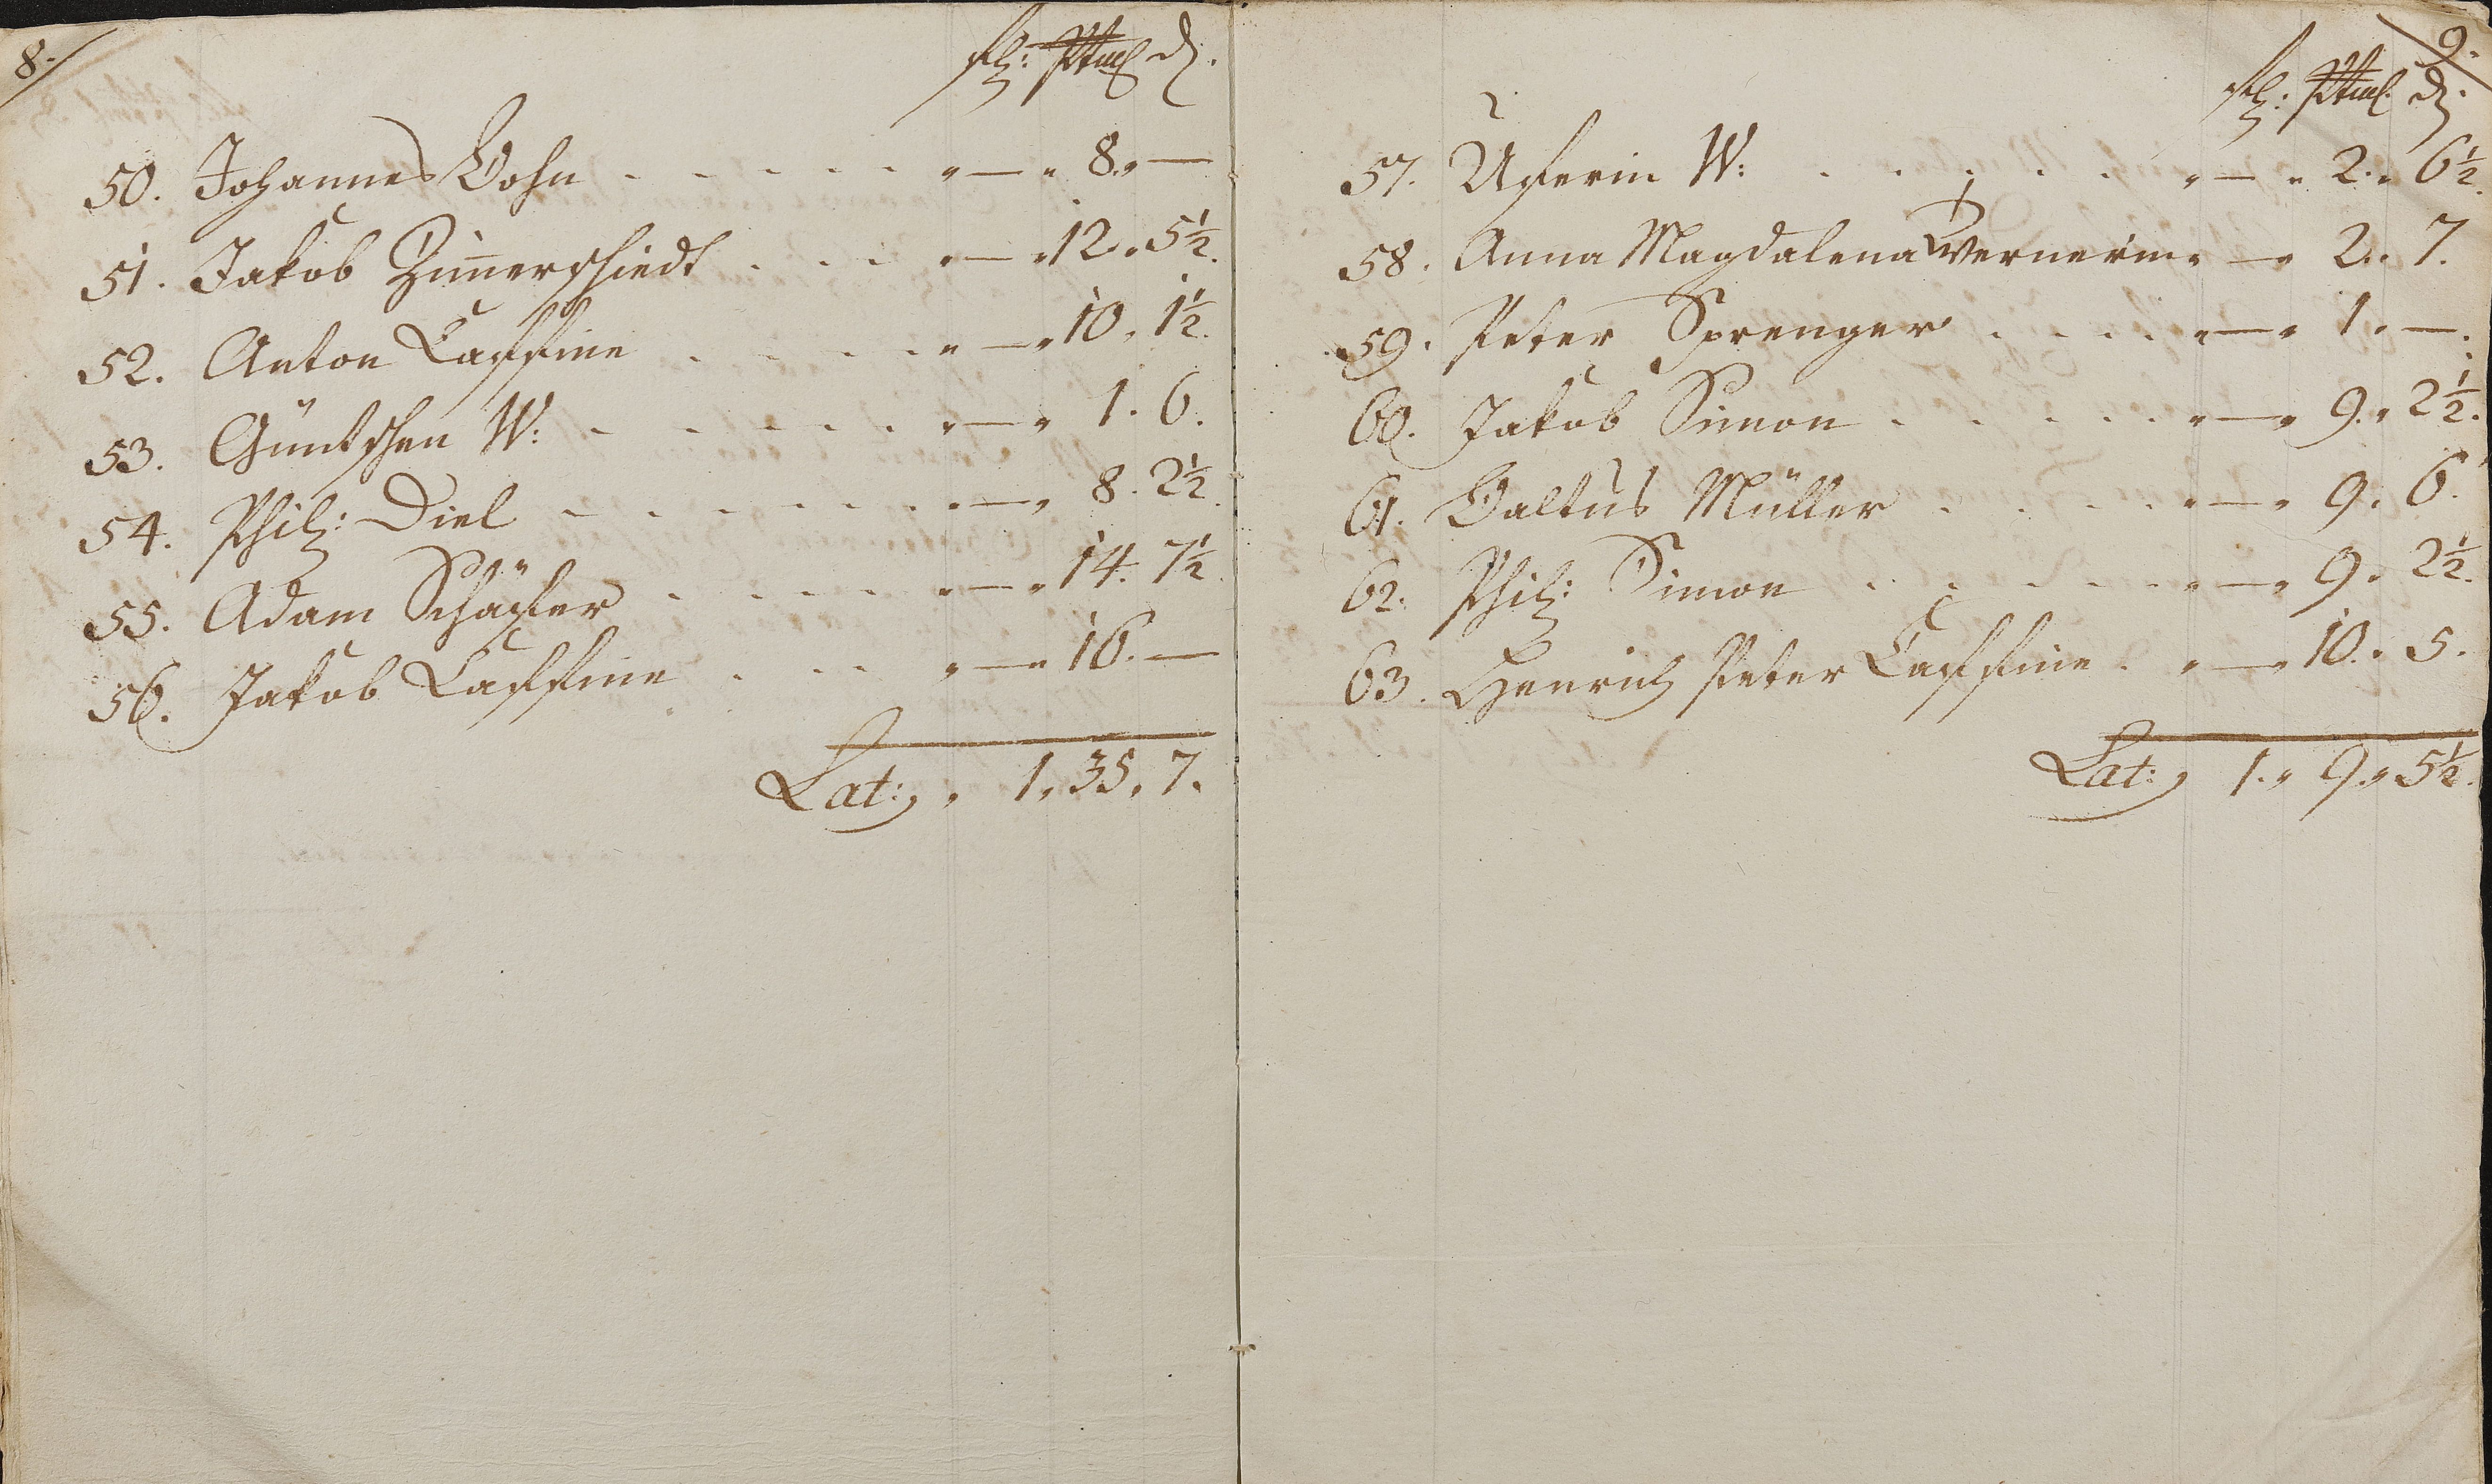 8.
fl: d.
50. Johannes Bohn . . . . . " — " 8. " —
51. Jakob Zim̄erschiedt . . . " — " 12. " 5½.
52. Anton Cassine . . . . " — " 10. 1½.
53. Güntschen W: . . . . . " — " 1. 6.
54. Phil: Diel . . . . . " — " 8. 2½.
55. Adam Schäfer . . . . " — " 14. 7½.
56. Jakob Cassine . . . " — " 16. —
Lat: " 1. 35. 7.
9.
fl: d.
57. Uferin W: . . . . . " — " 2. " 6½.
58. Anna Magdalena Wernerin " — " 2. " 7.
59. Peter Sprenger . . . . " — " 1. " —.
60. Jakob Simon . . . . . " — " 9. " 2½.
61. Baltus Müller . . . . " — " 9. 6.
62. Phil: Simon . . . . . " — " 9. 2½.
63. Henrich Peter Cassine . " — " 10. " 5.
Lat: 1. " 9. " 5½.